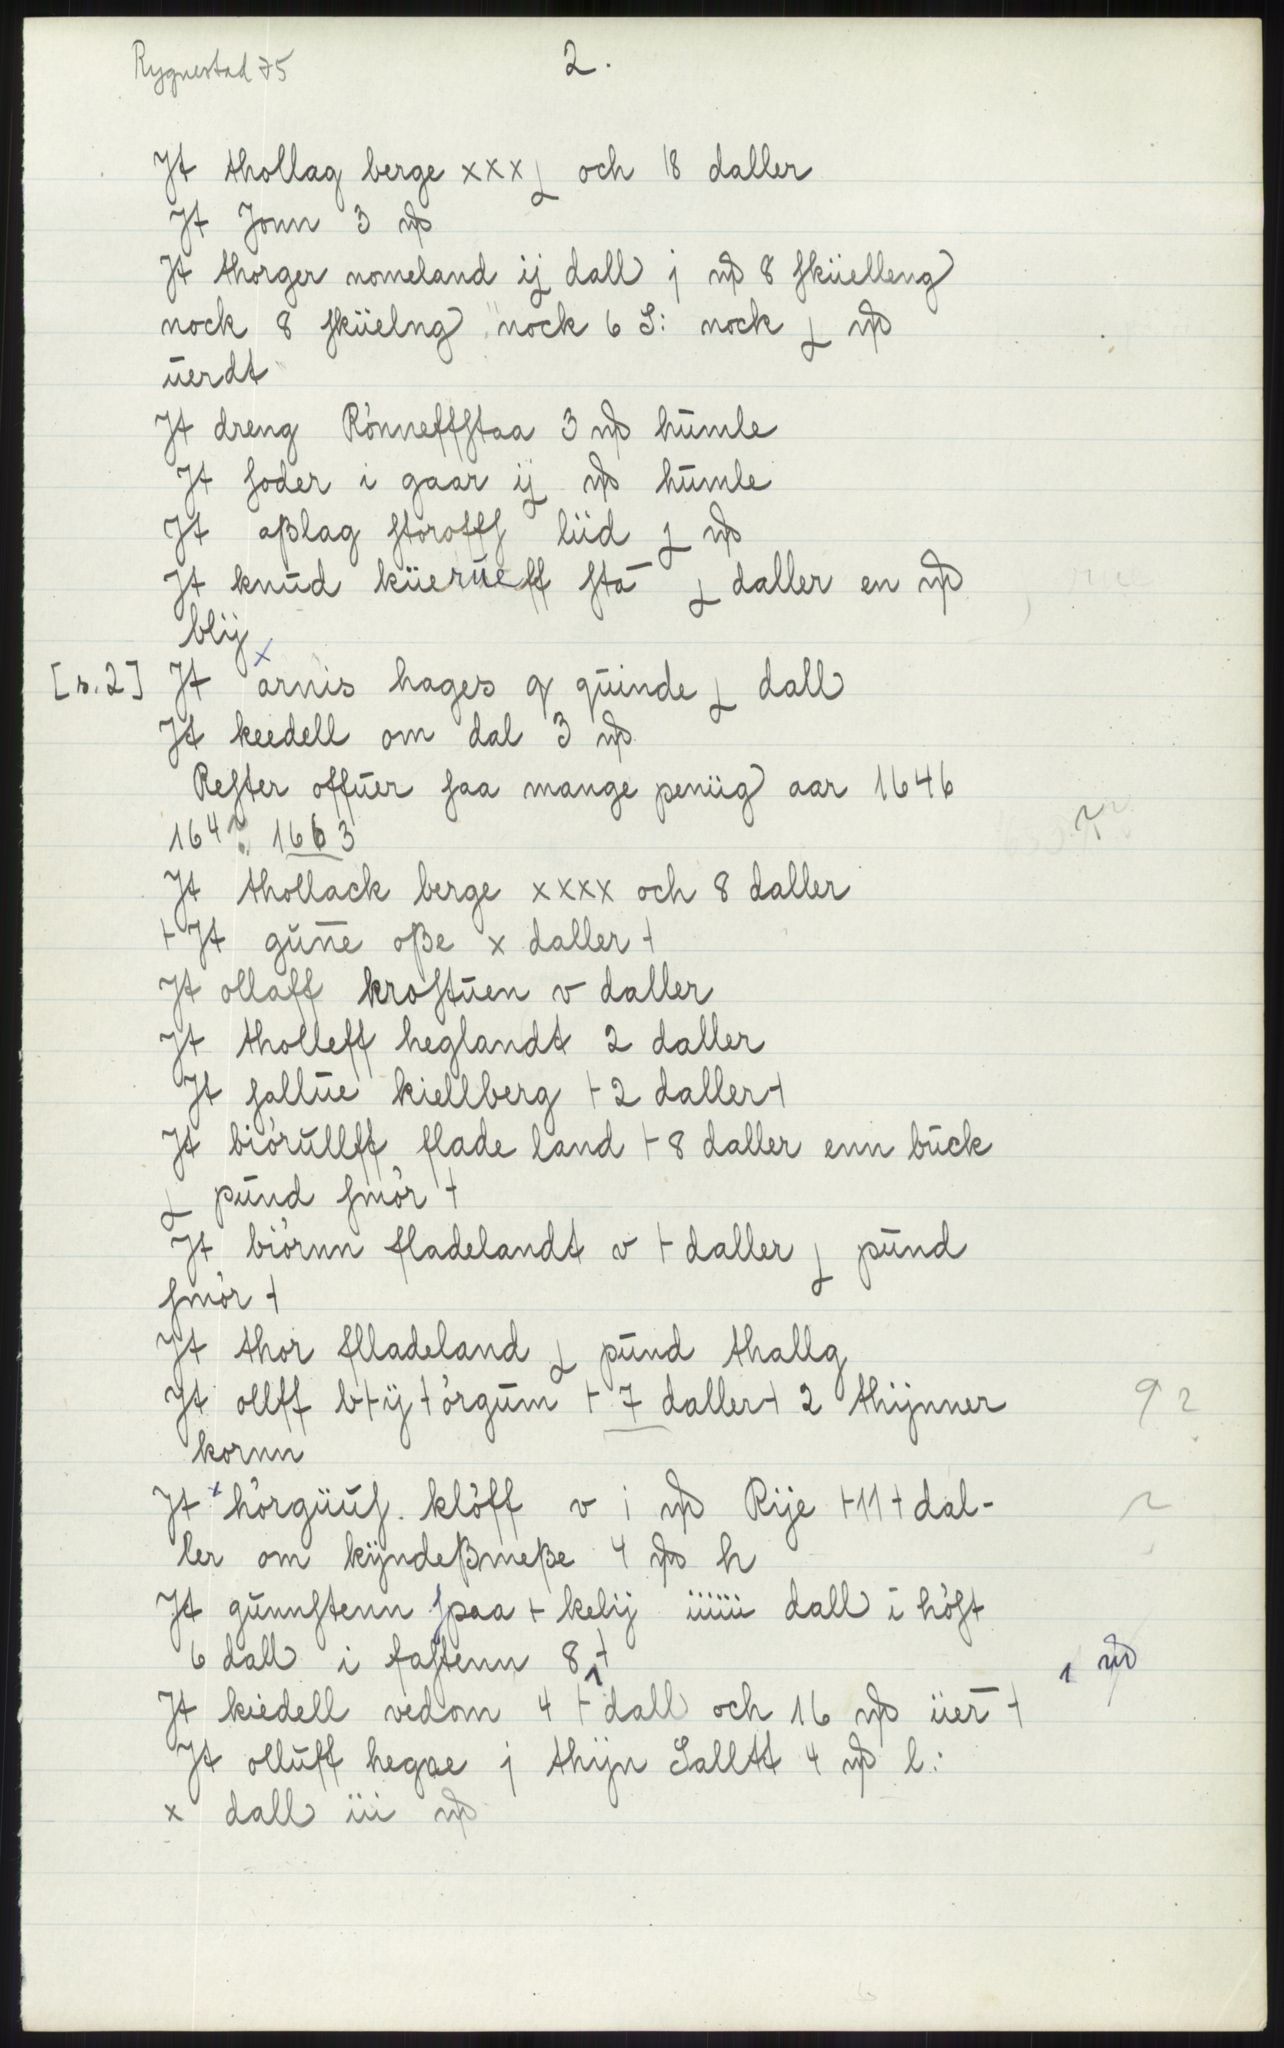 Rygnestad 75
2.
Jt thollag berge xxx j och 18 daller
Jt Jonn 3 ₰
Jt thorger nomeland ij dall j ₰ 8 skŭelleng
nock 8 skŭelng nock 6 S: nock j ₰
ŭerdt
Jt dreng Rònneffstaa 3 ₰ hŭmle
Jt soder i gaar ij ₰ hŭmle
Jt aßlag storoffs lüd j ₰
Jt knŭd kŭerŭeff sta j daller en ₰
blij
[s.2] Jt x arnis hages q qŭinde j dall
Jt keedell om dal 3 ₰
Rester offŭer saa mange penüg aar 1646
164?. 1663
Jt thollack berge xxxx och 8 daller
+ Jt gŭn̄e oße x daller +
Jt ollaff krostŭen v daller
Jt tholleff heglandt 2 daller
Jt sallŭe kiellberg + 2 daller +
Jt biòrŭllff flade land + 8 daller enn bŭck
j pŭnd smòr +
Jt biòrnn fladelandt v + daller j pŭnd
smòr +
Jt thor flladeland j pŭnd thallg
Jt ollff b+ÿ+òrgŭm + 7 daller + 2 thijnner
kornn
Jt x hòrgüŭs. klòff v i ₰ Rije + 11 + dal-
ler om kijndeßmeße 4 ₰ h
Jt gŭnnstenn spaa + kelij iiiiii dall i hòst
6 dall i fastenn 8 +
1 ₰
Jt kiedell vedom 4 + dall och 16 ₰ üer +
Jt ollŭff hegae j thijn Salltt 4 ₰ l:
x dall iii ₰